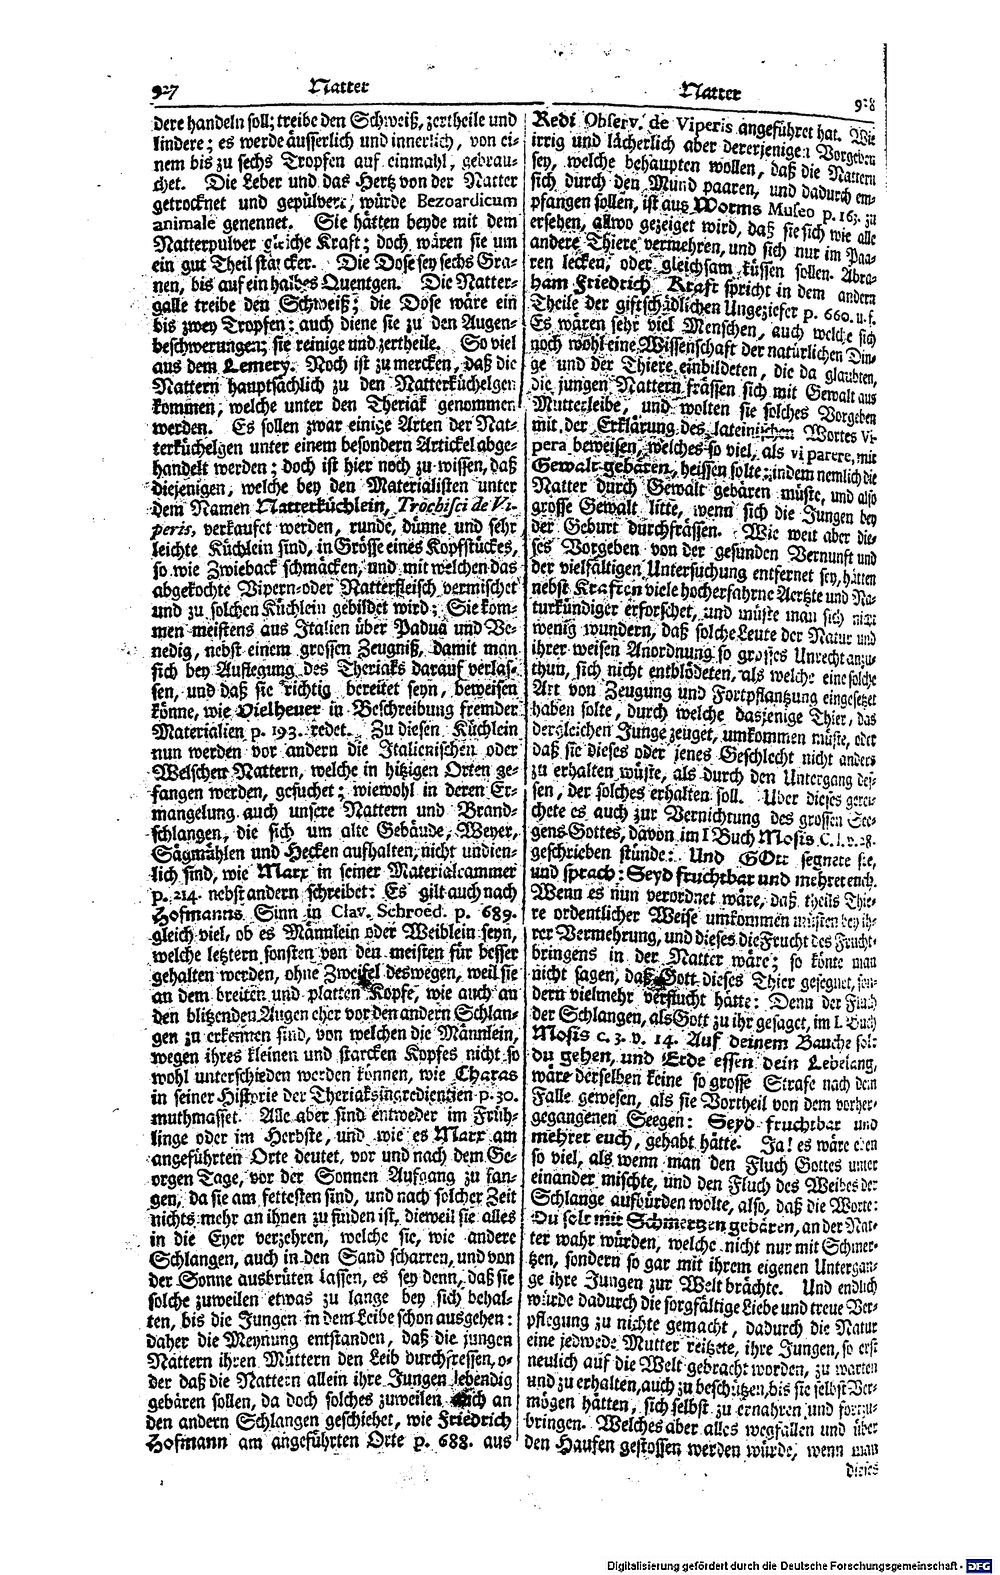 927 Natter
dere handeln soll; treibe den Schweiß, zertheile und
lindere; es werde äusserlich und innerlich, von ei-
nem bis zu sechs Tropfen auf einmahl, gebrau-
chet. Die Leber und das Hertz von der Natter
getrocknet und gepülvert, würde Bezoardicum
animale genennet. Sie hätten beyde mit dem
Natterpulver gleiche Kraft; doch wären sie um
ein gut Theil stärcker. Die Dose sey sechs Gra-
nen, bis auf ein halbes Quentgen. Die Natter-
galle treibe den Schweiß; die Dose wäre ein
bis zwey Tropfen; auch diene sie zu den Augen-
beschwerungen; sie reinige und zertheile. So viel
aus dem Lemery. Noch ist zu mercken, daß die
Nattern hauptsächlich zu den Natterküchelgen
kommen, welche unter den Theriak genommen
werden. Es sollen zwar einige Arten der Nat-
terküchelgen unter einem besondern Artickel abge-
handelt werden; doch ist hier noch zu wissen, daß
diejenigen, welche bey den Materialisten unter
dem Namen Natterküchlein, Trochisci de Vi-
peris, verkaufet werden, runde, dünne und sehr
leichte Küchlein sind, in Grösse eines Kopfstückes,
so wie Zwieback schmäcken, und mit welchen das
abgekochte Vipern- oder Natterfleisch vermischet
und zu solchen Küchlein gebildet wird; Sie kom-
men meistens aus Italien über Padua und Ve-
nedig, nebst einem grossen Zeugniß, damit man
sich bey Auflegung des Theriaks darauf verlas-
sen, und daß sie richtig bereitet seyn, beweisen
könne, wie Vielheuer in Beschreibung fremder
Materialien p. 193. redet. Zu diesen Küchlein
nun werden vor andern die Italienischen oder
Welschen Nattern, welche in hitzigen Orten ge-
fangen werden, gesuchet; wiewohl in deren Er-
mangelung auch unsere Nattern und Brand-
schlangen, die sich um alte Gebäude, Weyer,
Sägmühlen und Hecken aufhalten, nicht undien-
lich sind, wie Marx in seiner Materialcammer
p. 214. nebst andern schreibet: Es gilt auch nach
Hofmanns Sinn in Clav. Schroed. p. 689.
gleich viel, ob es Männlein oder Weiblein seyn,
welche letztern sonsten von den meisten für besser
gehalten werden, ohne Zweifel deswegen, weil sie
an dem breiten und platten Kopfe, wie auch an
den blitzenden Augen eher vor den andern Schlan-
gen zu erkennen sind, von welchen die Männlein,
wegen ihres kleinen und starcken Kopfes nicht so
wohl unterschieden werden können, wie Charas
in seiner Historie der Theriaksingredientien p. 30.
muthmasset. Alle aber sind entweder im Früh-
linge oder im Herbste, und wie es Marx am
angeführten Orte deutet, vor und nach dem Ge-
orgen Tage, vor der Sonnen Aufgang zu fan-
gen, da sie am fettesten sind, und nach solcher Zeit
nichts mehr an ihnen zu finden ist, dieweil sie alles
in die Eyer verzehren, welche sie, wie andere
Schlangen, auch in den Sand scharren, und von
der Sonne ausbrüten lassen, es sey denn, daß sie
solche zuweilen etwas zu lange bey sich behal-
ten, bis die Jungen in dem Leibe schon ausgehen:
daher die Meynung entstanden, daß die jungen
Nattern ihren Müttern den Leib durchfressen, o-
der daß die Nattern allein ihre Jungen lebendig
gebären sollen, da doch solches zuweilen auch an
den andern Schlangen geschiehet, wie Friedrich
Hofmann am angeführten Orte p. 688. aus
Natter 928
Redi Observ. de Viperis angeführet hat. Wie
irrig und lächerlich aber dererjenigen Vorgeben
sey, welche behaupten wollen, daß die Nattern
sich durch den Mund paaren, und dadurch em-
pfangen sollen, ist aus Worms Museo p. 163. zu
ersehen, allwo gezeiget wird, daß sie sich wie alle
andere Thiere vermehren, und sich nur im Paa-
ren lecken, oder gleichsam küssen sollen. Abra-
ham Friedrich Kraft spricht in dem andern
Theile der giftschädlichen Ungeziefer p. 660. u. f.
Es wären sehr viel Menschen, auch welche sich
noch wohl eine Wissenschaft der natürlichen Din-
ge und der Thiere einbildeten, die da glaubten,
die jungen Nattern frässen sich mit Gewalt aus
Mutterleibe, und wolten sie solches Vorgeben
mit der Erklärung des lateinischen Wortes Vi-
pera beweisen, welches so viel, als vi parere, mit
Gewalt gebären, heissen solte; indem nemlich die
Natter durch Gewalt gebären müste, und also
grosse Gewalt litte, wenn sich die Jungen bey
der Geburt durchfrässen. Wie weit aber die-
ses Vorgeben von der gesunden Vernunft und
der vielfältigen Untersuchung entfernet sey, hätten
nebst Kraften viele hocherfahrne Aertzte und Na-
turkündiger erforschet, und müste man sich nicht
wenig wundern, daß solche Leute der Natur und
ihrer weisen Anordnung so grosses Unrecht anzu-
thun, sich nicht entblödeten, als welche eine solche
Art von Zeugung und Fortpflantzung eingesetzet
haben solte, durch welche dasjenige Thier, das
dergleichen Junge zeuget, umkommen müste, oder
daß sie dieses oder jenes Geschlecht nicht anders
zu erhalten wüste, als durch den Untergang des-
sen, der solches erhalten soll. Uber dieses gerei-
chete es auch zur Vernichtung des grossen See-
gens Gottes, davon im I Buch Mosis C. I. v. 28.
geschrieben stünde: Und GOtt segnete sie,
und sprach: Seyd fruchtbar und mehret euch.
Wenn es nun verordnet wäre, daß theils Thie-
re ordentlicher Weise umkommen müsten bey ih-
rer Vermehrung, und dieses die Frucht des Frucht-
bringens in der Natter wäre; so könte man
nicht sagen, daß Gott dieses Thier gesegnet, son-
dern vielmehr verflucht hätte: Denn der Fluch
der Schlangen, als Gott zu ihr gesaget, im I. Buch
Mosis c. 3. v. 14. Auf deinem Bauche solt
du gehen, und Erde essen dein Lebelang,
wäre derselben keine so grosse Strafe nach dem
Falle gewesen, als sie Vortheil von dem vorher-
gegangenen Seegen: Seyd fruchtbar und
mehret euch, gehabt hätte. Ja! es wäre eben
so viel, als wenn man den Fluch Gottes unter
einander mischte, und den Fluch des Weibes der
Schlange aufbürden wolte, also, daß die Worte:
Du solt mit Schmertzen gebären, an der Nat-
ter wahr würden, welche nicht nur mit Schmer-
tzen, sondern so gar mit ihrem eigenen Untergan-
ge ihre Jungen zur Welt brächte. Und endlich
würde dadurch die sorgfältige Liebe und treue Ver-
pflegung zu nichte gemacht, dadurch die Natur
eine jedwede Mutter reitzete, ihre Jungen, so erst
neulich auf die Welt gebracht worden, zu warten
und zu erhalten, auch zu beschützen, bis sie selbst Ver-
mögen hätten, sich selbst zu ernähren und fortzu-
bringen. Welches aber alles wegfallen und über
den Haufen gestossen werden würde, wenn man
dieses
Digitalisierung gefördert durch die Deutsche Forschungsgemeinschaft - DFG